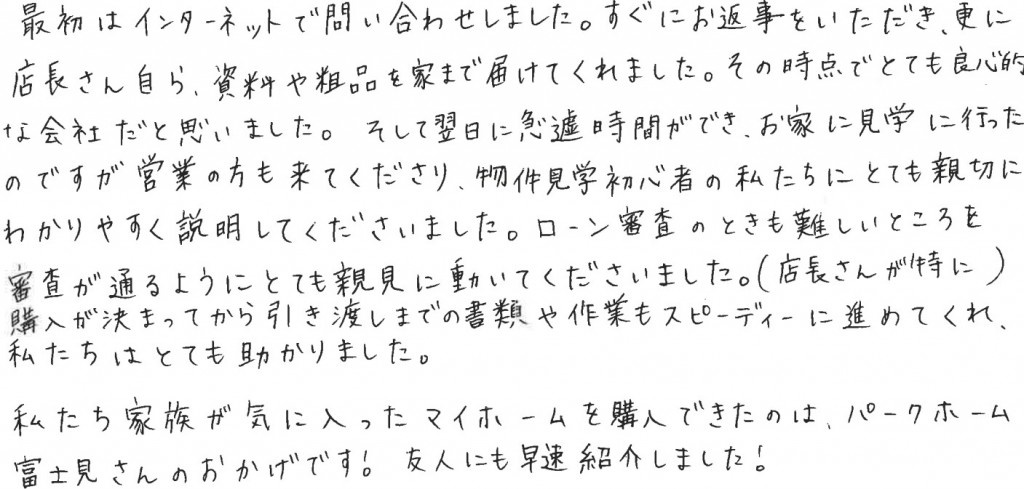 最初はインターネットで問い合わせしました。すぐにお返事をいただき、更に
店長さん自ら、資料や粗品を家まで届けてくれました。その時点でとても良心的
な会社だと思いました。 そして翌日に急遽時間ができ、お家に見学に行った
のですが営業の方も来てくださり、物件見学初心者の私たちにとても親切に
わかりやすく説明してくださいました。ローン審査のときも難しいところを
審査が通るようにとても親見に動いてくださいました。(店長さんが特に)
購入が決まってから引き渡しまでの書類や作業もスピーディーに進めてくれ、
私たちはとても助かりました。
私たち家族が気に入ったマイホームを購入できたのは、パークホーム
富士見さんのおかげです! 友人にも早速紹介しました!